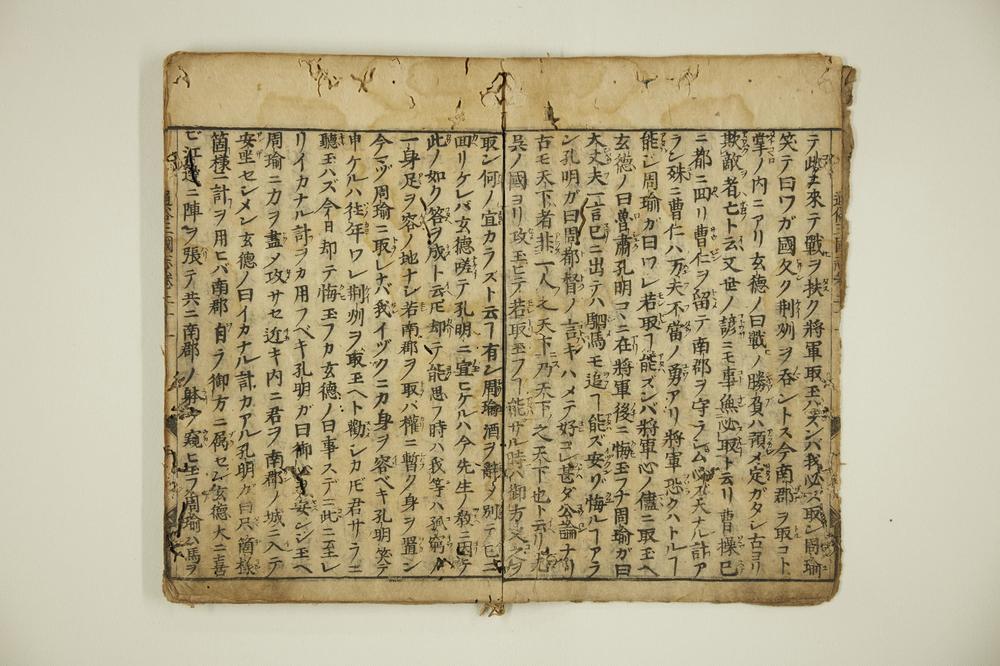 テ此ニ來テ戰ヲ扶ク將軍取玉ハズンバ我必ズ取ン周瑜
笑テ曰ワガ國久ク荊州ヲ呑ントス今南郡ヲ取コト
掌ノ内ニアリ玄德ノ曰戰ノ勝負ハ預メ定ガタシ古ヨリ
欺敵者亡ト云又世ノ諺ニモ事無必取ト云リ曹操已
ニ都ニ回リ曹仁ヲ留テ南郡ヲ守ラシム必ズ大ナル計ア
ラン殊ニ曹仁ハ万夫不當ノ勇アリ將軍恐クハトルヿ
能ジ周瑜ガ曰ワレ若取ヿ能ズンバ將軍心ノ儘ニ取玉ヘ
玄德ノ曰曹肅孔明コヽニ在將軍後ニ悔玉フナ周瑜ガ曰
大丈夫一言已ニ出テハ駟馬モ追ヿ能ズ安ゾ悔ルヿアラ
ン孔明ガ曰周都督ノ言キハメテ好コレ甚ダ公論ナリ
古モ天下者非一人之天下乃天下之天下也ト云リ先
呉ノ國ヨリ攻玉ヒテ若取玉フヿ能ザル時ハ御方又之ヲ
取ン何ノ宜カラズト云ヿ有ン周瑜酒ヲ辭シ別テ已ニ
回リケレバ玄德嗟テ孔明ニ宣ヒケルハ今先生ノ教ニ因テ
此ノ如ク答ヲ成ト云𪜈却テ能思フ時ハ我等ハ孤窮ノ
一身足ヲ容ノ地ナシ若南郡ヲ取バ權ニ暫ク身ヲ置ン
今マヅ周瑜ニ取レナバ我イヅクニカ身ヲ容ベキ孔明笑テ
申ケルハ往年ワレ荊州ヲ取玉ヘト勸シカ𪜈君サラニ
聽玉ハズ今日却テ悔玉フカ玄德ノ曰事スデニ此ニ至レ
リイカナル計ヲカ用フベキ孔明ガ曰御心ヲ安ンジ玉ヘ
周瑜ニ力ヲ盡メ攻サセ近キ内ニ君ヲ南郡ノ城ニヘテ
安坐セシメン玄德ノ曰イカナル計カアル孔明ガ曰只箇樣
箇樣ニ計ヲ用ヒバ南郡自ラ御方ニ属セン玄德大ニ喜
ビ江邊ニ陣ヲ張テ共ニ南郡ノ躰ヲ窺ヒ玉フ周瑜ハ馬ヲ